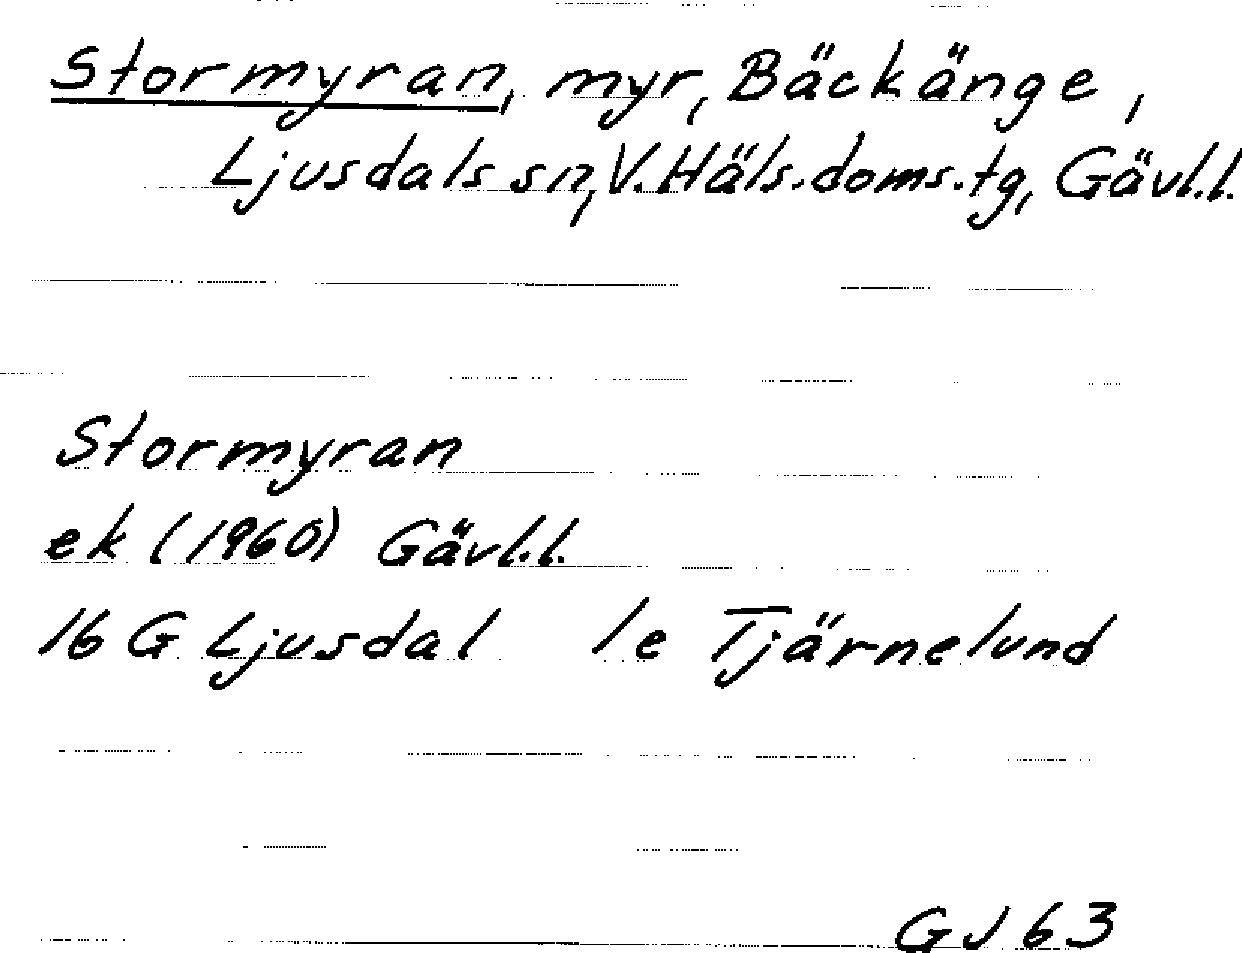 Stormyran, myr, Bäckänge,
Ljusdals sn, V. Häls. doms. tg, Gävl.l.
Stormyran
ek (1960) Gävl.l.
16 G Ljusdal 1e Tjärnelund
GJ 63